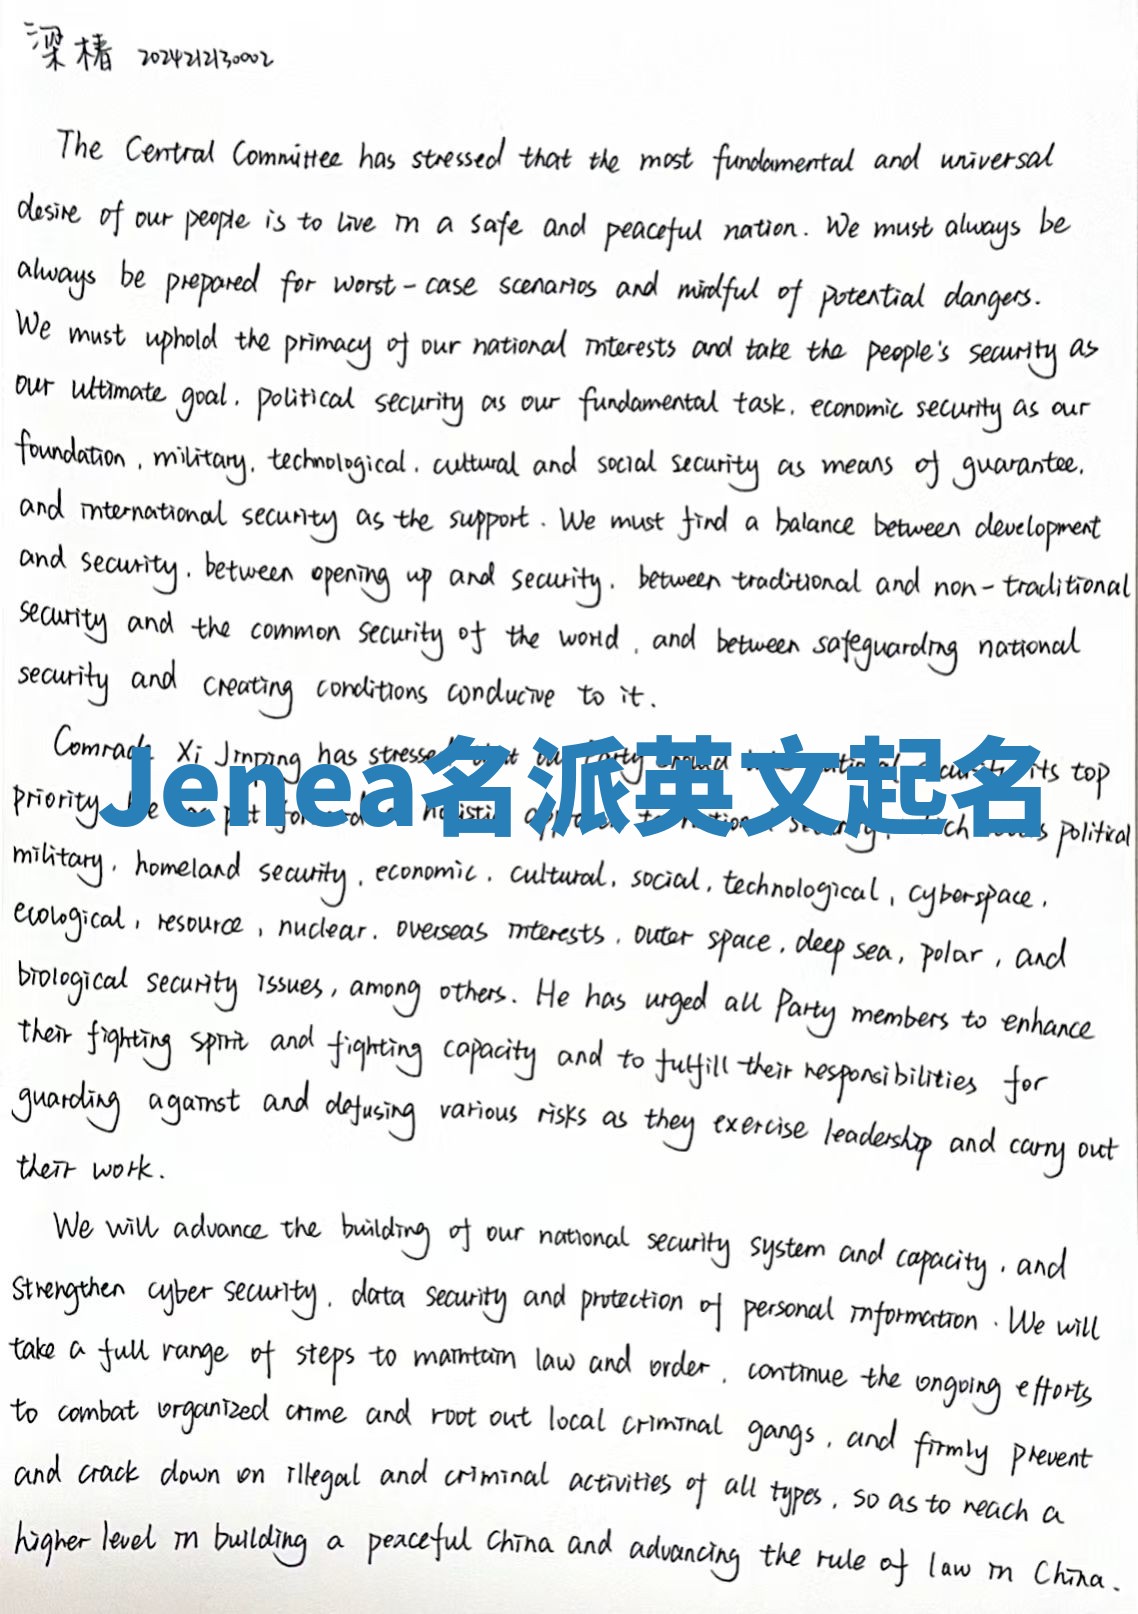 梁椿 2024212130002
The Central Committee has stressed that the most fundamental and universal
desire of our people is to live in a safe and peaceful nation. We must always be
always be prepared for worst-case scenarios and mindful of potential dangers.
We must uphold the primacy of our national interests and take the people's security as
our ultimate goal, political security as our fundamental task, economic security as our
foundation, military, technological, cultural and social security as means of guarantee,
and international security as the support. We must find a balance between development
and security, between opening up and security, between traditional and non-traditional
security and the common security of the world, and between safeguarding national
security and creating conditions conducive to it.
Comrade Xi Jinping has stressed its top
Jenea名派英文起名
priority political
military, homeland security, economic, cultural, social, technological, cyberspace,
ecological, resource, nuclear, overseas interests, outer space, deep sea, polar, and
biological security issues, among others. He has urged all Party members to enhance
their fighting spirit and fighting capacity and to fulfill their responsibilities for
guarding against and defusing various risks as they exercise leadership and carry out
their work.
We will advance the building of our national security system and capacity, and
strengthen cyber security, data security and protection of personal information. We will
take a full range of steps to maintain law and order, continue the ongoing efforts
to combat organized crime and root out local criminal gangs, and firmly prevent
and crack down on illegal and criminal activities of all types, so as to reach a
higher level in building a peaceful China and advancing the rule of law in China.